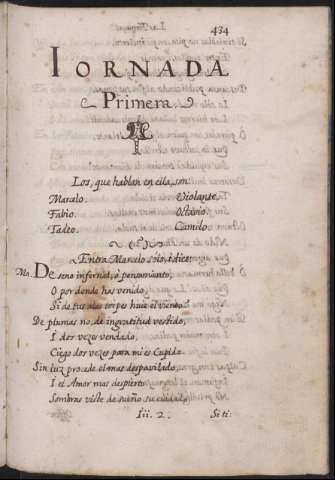 434
IORNADA
Primera
Los, que hablan en ella, son:
Marcelo. Violante.
Fabio. Octavio.
Tadeo. Camilo.
Entra Marcelo solo, i dize:
Ma. De seno infernal, ò pensamiento,
O por donde has venido,
Si de tus alas torpes huie el viento?
De plumas no, de ingratitud vestido,
I dos vezes vendado,
Ciego dos vezes para mi es Cupido.
Sin luz procede el mas despavilado,
I el Amor mas despierto
Sombras viste de sueño su cuidado,
Iii. 2. Si ti: